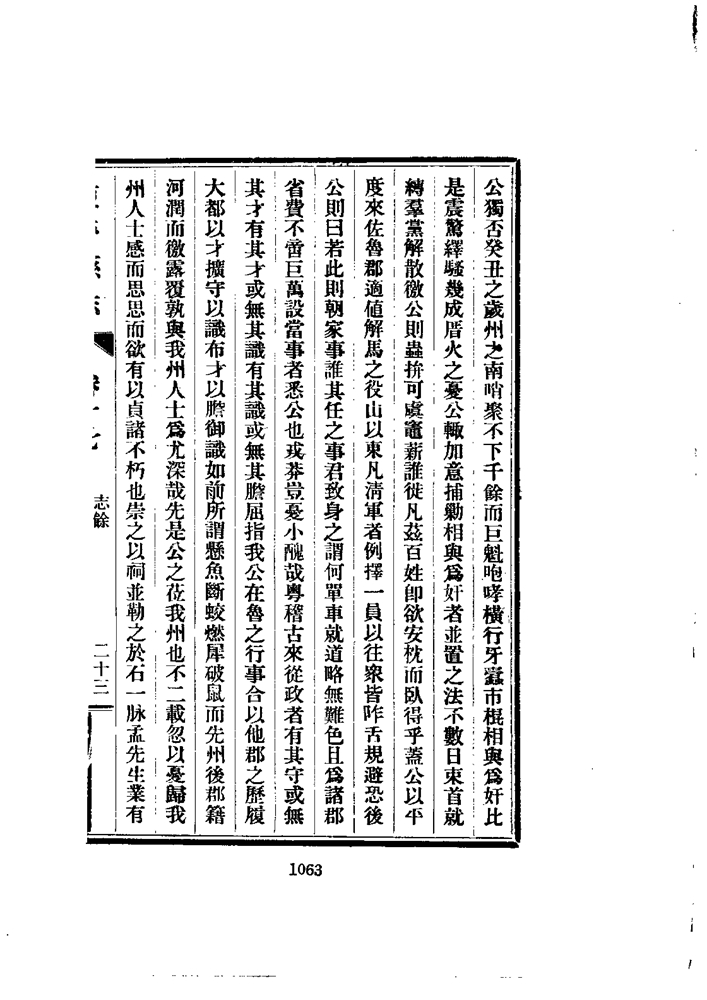 公獨否癸丑之歲州之南哨聚不下千餘而巨魁咆哮橫行牙蠹市棍相與爲奸比
是震驚繹騷幾成厝火之憂公輙加意捕勦相與爲奸者並置之法不數日束首就
縛羣黨解散徵公則蟲拚可虞竈薪誰徙凡茲百姓卽欲安枕而臥得乎蓋公以平
度來佐魯郡適値解馬之役山以東凡淸軍者例擇一員以往衆皆咋舌規避恐後
公則曰若此則朝家事誰其任之事君致身之謂何單車就道略無難色且爲諸郡
省費不啻巨萬設當事者悉公也戎莽豈憂小醜哉粵稽古來從政者有其守或無
其才有其才或無其識有其識或無其膽屈指我公在魯之行事合以他郡之歷履
大都以才擴守以識布才以膽御識如前所謂懸魚斷蛟燃犀破鼠而先州後郡籍
河潤而徼露覆孰與我州人士爲尤深哉先是公之莅我州也不二載忽以憂歸我
州人士感而思思而欲有以貞諸不朽也崇之以祠並勒之於石一脉孟先生業有
志餘
二十三
1063